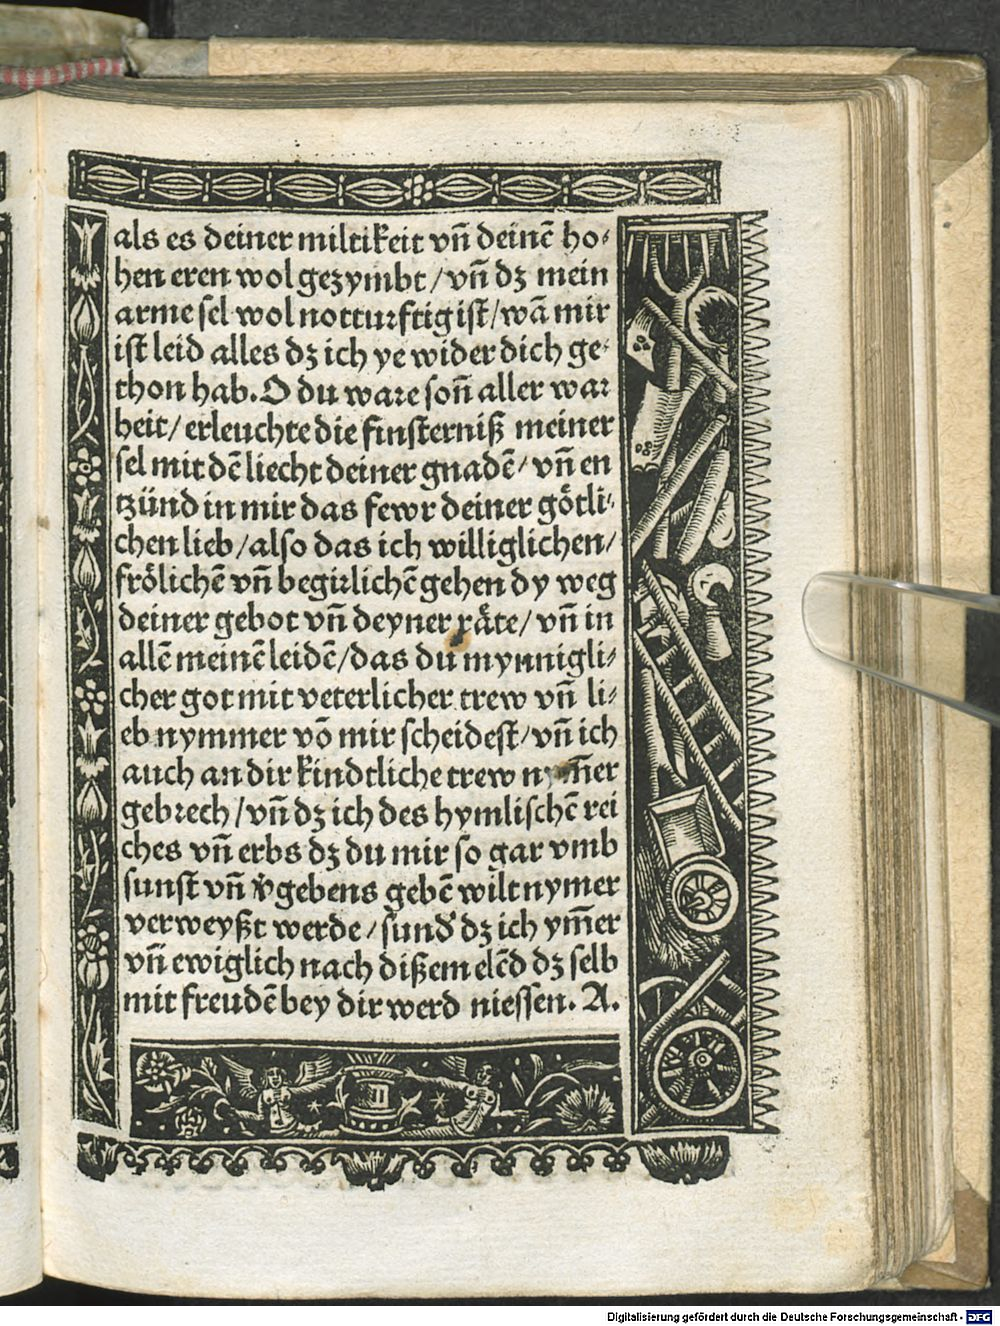 als es deiner miltikeit vn̄ deinē ho⸗
hen eren wol gezymbt / vn̄ dꝫ mein
arme sel wol notturftig ist / wā mir
ist leid alles dꝫ ich ye wider dich ge⸗
thon hab. O du ware son̄ aller war
heit / erleuchte die finsterniß meiner
sel mit dē liecht deiner gnadē / vn̄ en
tzünd in mir das fewr deiner gôtli⸗
chen lieb / also das ich williglichen /
frôlichē vn̄ begirlichē gehen dy weg
deiner gebot vn̄ deyner râte / vn̄ in
allē meinē leidē / das du mynnigli⸗
cher got mit veterlicher trew vn̄ li⸗
eb nymmer vō mir scheidest / vn̄ ich
auch an dir kindtliche trew nym̄er
gebrech / vn̄ dꝫ ich des hymlischē rei
ches vn̄ erbs dꝫ du mir so gar vmb
sunst vn̄ v̓gebens gebē wilt nymer
verweyßt werde / sund̓ dꝫ ich ym̄er
vn̄ ewiglich nach dißem elēd dꝫ selb
mit freudē bey dir werd niessen. A.
Digitalisierung gefördert durch die Deutsche Forschungsgemeinschaft - DFG